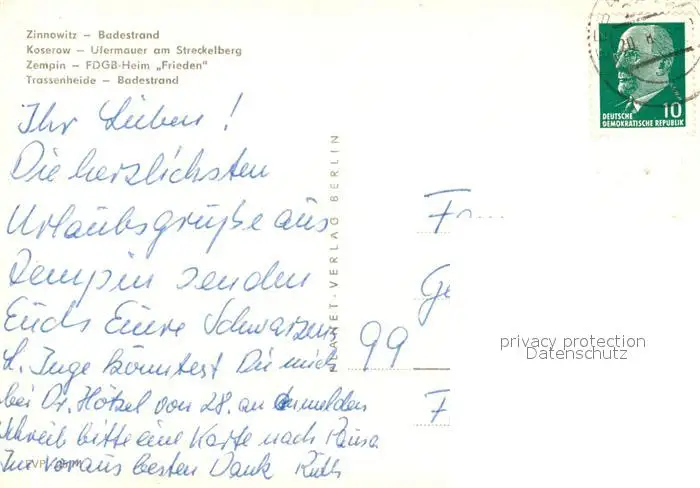 Zinnowitz – Badestrand
Koserow – Ufermauer am Streckelberg
Zempin – FDGB-Heim „Frieden"
Trassenheide – Badestrand
Ihr Lieben!
Die herzlichsten
Urlaubsgrüße aus
Zempin senden
Euch Eure Schwarzens
L. Inge könntest Du mich
bei Dr. Hötzel von 28. an anmelden
schreib bitte eine Karte nach Pausa
Im voraus besten Dank Ruth
PLANET-VERLAG BERLIN
10
DEUTSCHE
DEMOKRATISCHE REPUBLIK
99
privacy protection
Datenschutz